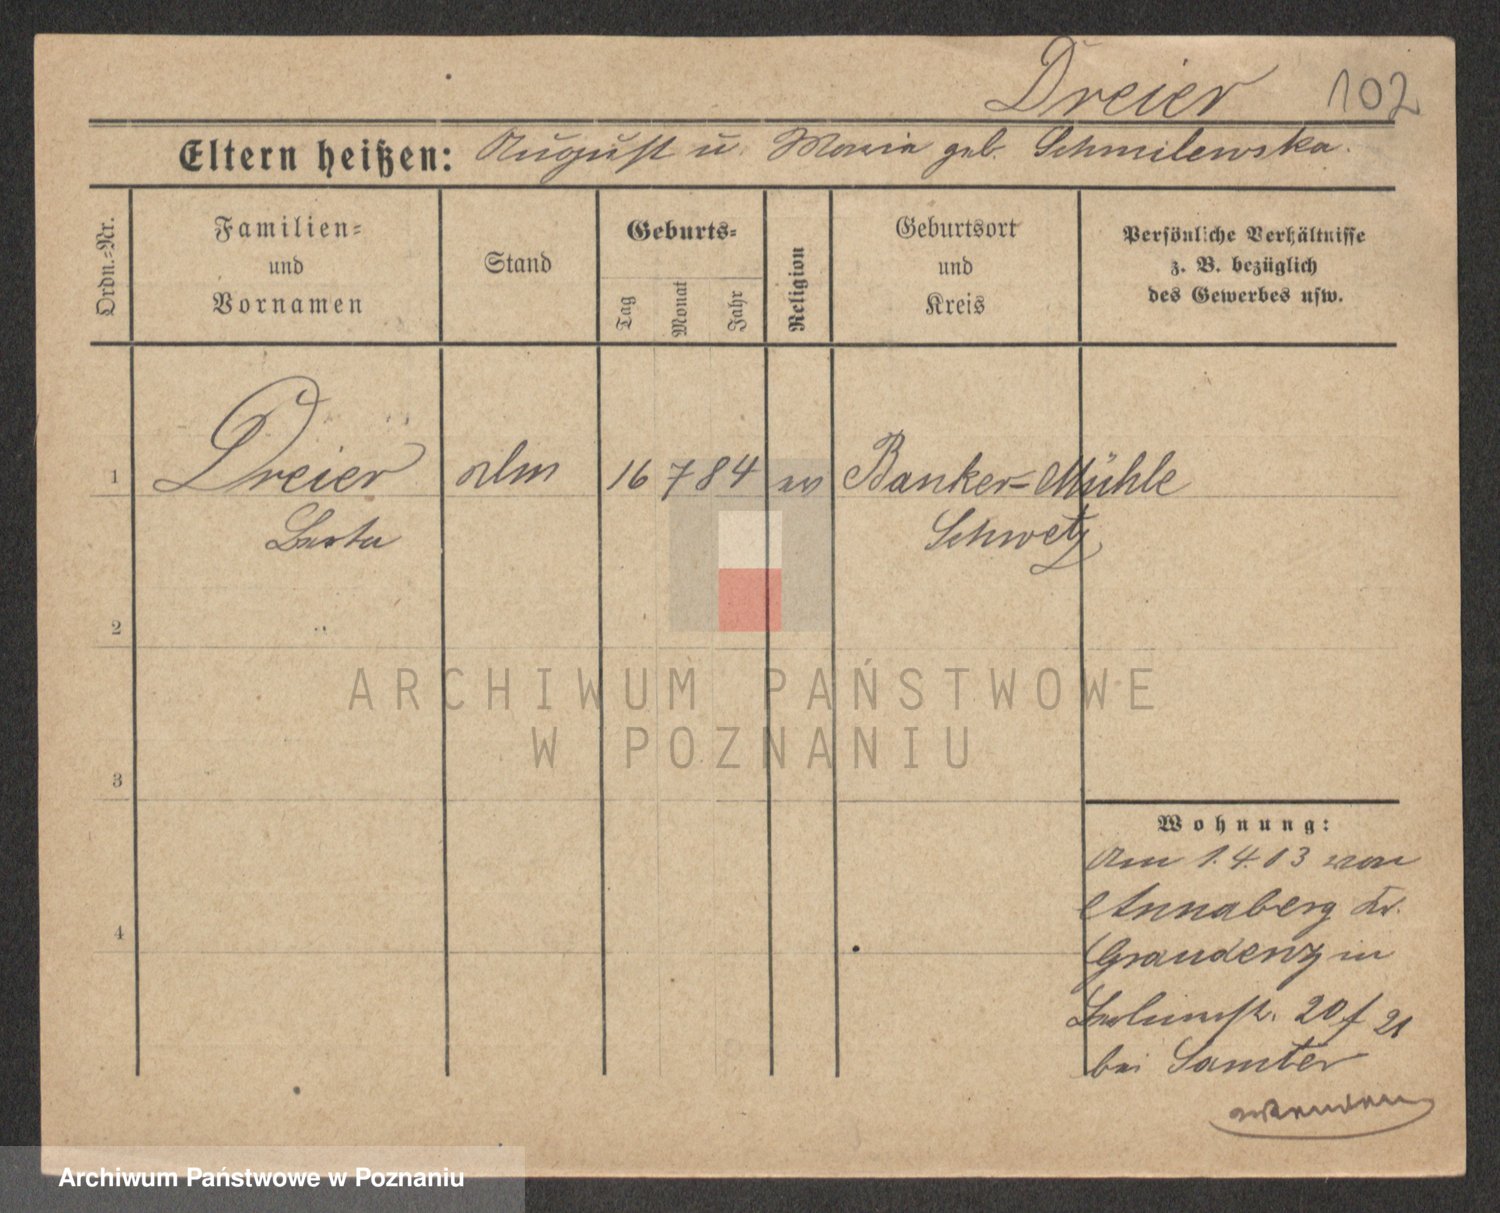 Dreier 102
Eltern heißen: August u. Maria geb. Schmilewska.
Ordn.-Nr.
Familien-
und
Vornamen
Stand
Geburts-
Tag
Monat
Jahr
Religion
Geburtsort
und
Kreis
Persönliche Verhältnisse
z. B. bezüglich
des Gewerbes usw.
1 Dreier 16 7 84 ev Banker-Mühle
Berta Schwetz
2
3
4
Wohnung:
Am 1.4.13 von
Annaberg Kr.
Graudenz in
20 f 21
bei Samter
ARCHIWUM PAŃSTWOWE
W POZNANIU
Archiwum Państwowe w Poznaniu